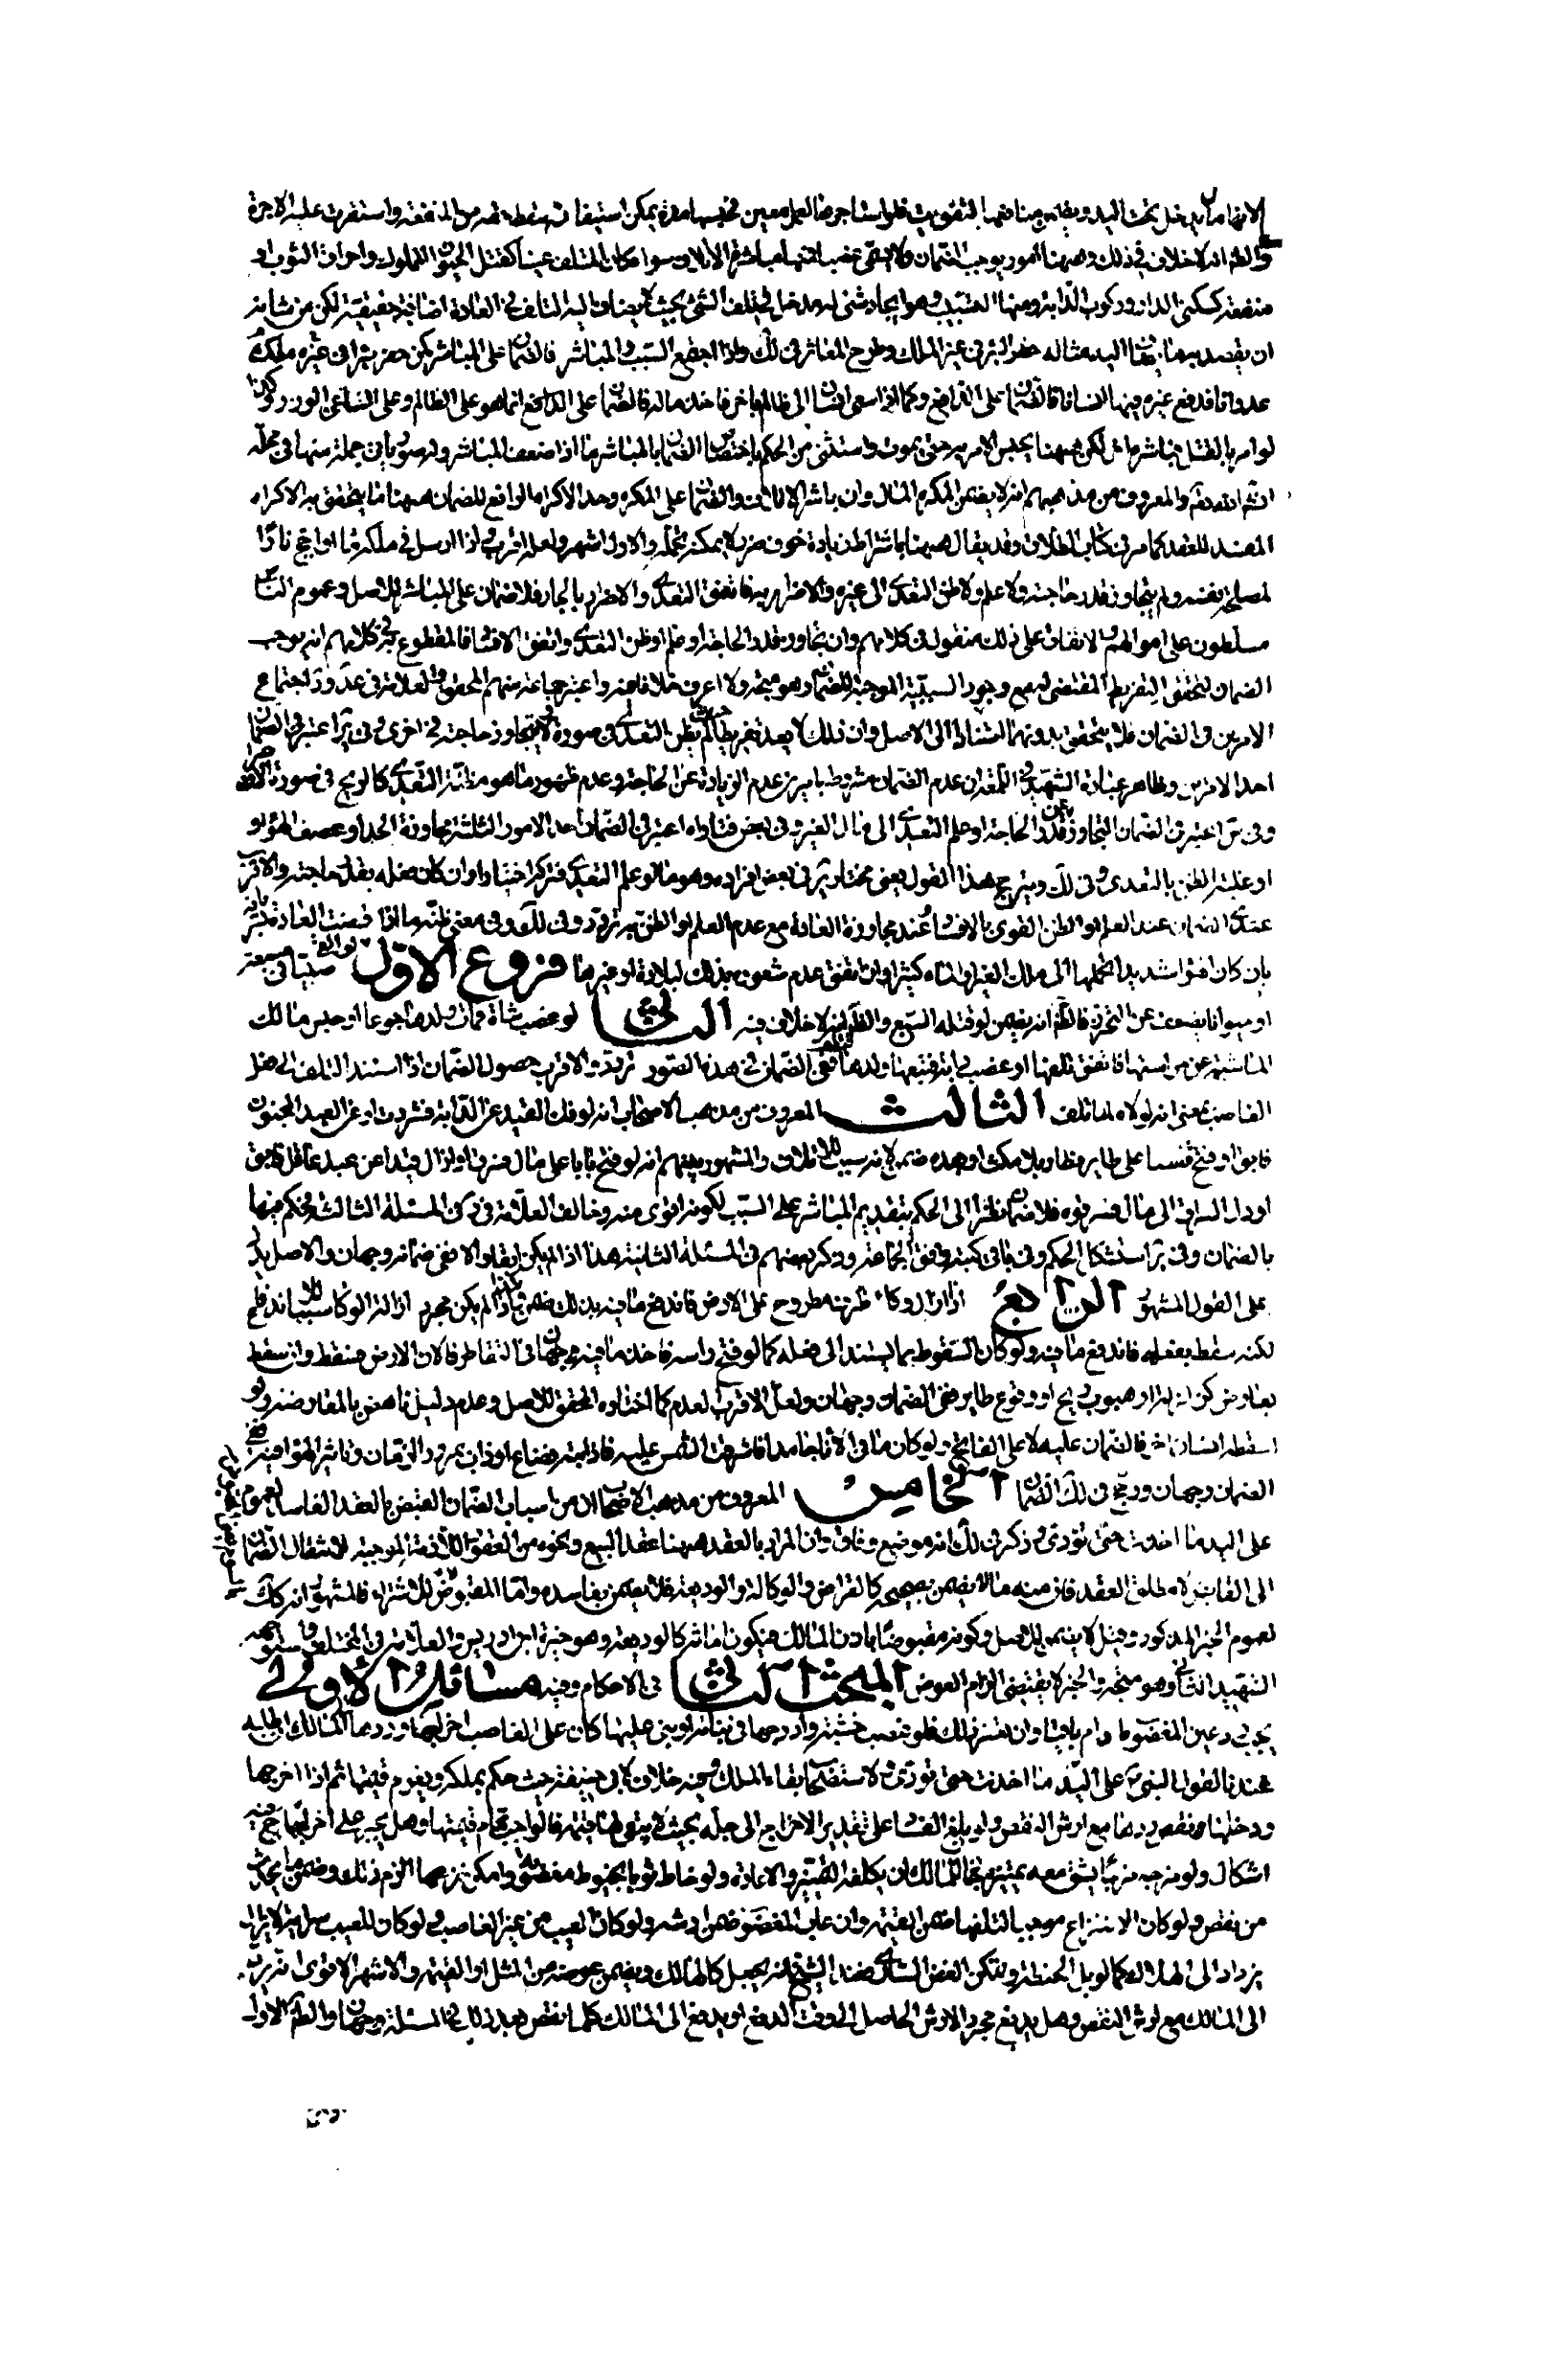 لانها مال يدخل تحت اليد ويضمن منافعها بالتفويت فلو استاجر ضالعمل معين فحبسها مدة يمكن استيفائه سقط حقه من المنفعة واستقرت عليه الاجرة
والظ انه لا خلاف في ذلك وههنا امور يوجب الضمان ولا يسمى غصبا منها مباشرة الاتلاف سواء كان المتلف عينا كقتل الحيوان المملوك واحراق الثوب او
منفعة كسكنى الدار وركوب الدابة ومنها التسبيب وهو ايجاد شئ له مدخل في تلف الشئ بحيث لا يضاف اليه التلف في العادة اضافة حقيقية لكن من شانه
ان يقصد بها يضاف اليه مثاله حفر البئر في غير الملك وطرح المعاثر في لك واذا اجتمع السبب والمباشر فالضمان على المباشر كمن حفر بئرا في غير ملكه
عدوانا فدفع غيره فيها انسانا فالضمان على الدافع وكما اذا سعى انسان الى ظالم باخر فاخذ ماله فالضمان على الدافع انما هو على الظالم وعلى الساعي الوزر وكذا
لو امر بالقتل فباشر ماض لكن ههنا يحبس الامر به حتى يموت واستثنى من الحكم باختصاص الضمان بالمباشر ما اذا ضعف المباشر وله صور ياتي جملة منها في محله
انش الله تعالى والمعروف من مذهبهم انه لا يضمن المكره المال وان باشر الاتلاف والضمان على المكره وحد الاكراه الرافع للضمان ههنا ما يتحقق به الاكراه
المفسد للعقد كما مر في كتاب الطلاق وقد يقال ههنا باشتراط زيادة خوف ضرر لا يمكن تحمله والاول اشهر ولعله اقرب ولو ارسل في ملكه ماء او اجج نارا
لمصلحة نفسه ولم يتجاوز قدر حاجته ولا علم ولا ظن التعدي الى غيره والاضرار به فاتفق التعدي والاضرار بالجار فلا ضمان على المباشر للاصل وعموم الناس
مسلطون على اموالهم والاتفاق على ذلك منقول في كلامهم وان تجاوز بقدر الحاجة او علم او ظن التعدي واتفق الافساد فالمقطوع به في كلامهم انه يوجب
الضمان لتحقق التفريط المقتضي له مع وجود السببية الموجبة للضمان وهو متجه ولا اعرف خلافا فيه واعتبر جماعة منهم المحقق والعلامة في عد ود اجتماع
الامرين في الضمان فلا يتحقق بدونهما استنادا الى الاصل وان ذلك لا يعد تفريطا حيث لم يظن التعدي في صورة ولا يتجاوز حاجته في اخرى وفي ير اعتبر في الضمان
احد الامرين وظاهر عبارة الشهيد في اللمعة ان عدم الضمان مشروط بامرين عدم الزيادة عن الحاجة وعدم ظهور ما هو مظنة التعدي كالريح في صورة الاحراق
وفي س اعتبر في الضمان التجاوز عن قدر الحاجة او علم التعدي الى مال الغير وفي بعض فتاواه اعتبر في الضمان احد الامور الثلثة مجاوزة الحد او عصف الهواء
او غلبة الظن بالتعدي وفي لك ويترجح هذا القول يعني مختار ير في بعض افراده وهو ما لو علم التعدي فتركه اختيارا وان كان فعله بقدر حاجته والاقرب
عندي الضمان عند العلم او الظن القوي بالافساد عند مجاوزة العادة مع عدم العلم او الظن به تردد وفي لك وفي معنى ظنه ما اذا قضت العادة بسريانه
بان كان افوا شديدا يحملها الى ملك الغير او الماء كثيرا وان اتفق عدم شعوره بذلك لبلادة او غيرها فروع الاول لو القى صبيا في مسبعة
او حيوانا يضعف عن التحرز فالظ انه يضمن لو قتله السبع والظ انه لا خلاف فيه الثاني لو غصب شاة فمات ولدها جوعا او حبس مالك
الماشية عن حراستها فاتفق تلفها او غصب دابة فتبعها ولدها ففي الضمان في هذه الصور تردد والاقرب حصول الضمان اذا استند التلف الى فعل
الغاصب بمعنى انه لولاه لما تلف الثالث المعروف من مذهب الاصحاب انه لو فك القيد عن الدابة فشردت او عن العبد المجنون
فابق او فتح قفسا على طاير فطار بلا مكث او بعده ضمن لانه سبب للاتلاف والمشهور بينهم انه لو فتح بابا على مال فسرق او ازال قيدا عن عبد عاقل فابق
او دل السراق الى مال فسرقوه فلا ضمان نظرا الى الحكم بتقديم المباشر على السبب لكونه اقوى منه وخالف العلامة في كرة في المسئلة الثالثة فحكم فيها
بالضمان وفي ير استشكل الحكم وفي باقي كتبه وافق الجماعة وذكر بعضهم في المسئلة الثانية هذا اذا لم يكن ابقا والا ففي ضمانه وجهان والاصل يدل
على القول المشهور الرابع اذا ازال وكاء ظرف مطروح على الارض فاندفع ما فيه بذلك ضمن فاذا لم يكن مجرد ازالة الوكاء سببا للاندفاع
لكنه سقط بفعله فاندفع ما فيه ولو كان السقوط بما يستند الى فعله كما لو فتح راسه فاخذ ما فيه في التقاطر فالان الارض فسقط وان سقط
بعارض كزلزلة او هبوب ريح او وقوع طاير ففي الضمان وجهان ولعل الاقرب العدم كما اختاره المحقق للاصل وعدم دليل ناهض بالمعارضة ولو
اسقطه انسان اخر فالضمان عليه لا على الفاتح ولو كان ما في الاناء جامدا فاشرقت الشمس عليه فاذابته فضاع او ذاب بمرور الزمان وتاثير الهواء فيه ففي
الضمان وجهان ورجح في لك الضمان الخامس المعروف من مذهب الاصحاب ان من اسباب الضمان القبض بالعقد الفاسد لعموم
على اليد ما اخذت حتى تؤدي وذكر في لك انه موضع وفاق وان المراد بالعقد ههنا عقد البيع ونحوه من العقود اللازمة الموجبة لانتقال الضمان
الى القابض لا مطلق العقد فان منه ما لا يضمن بصحيحه كالقراض والوكالة والوديعة فلا يضمن بفاسده واما المقبوض للاشتراء فالمشهور انه كك
لعموم الخبر المذكور وقيل لا يضمن للاصل وكونه مقبوضا باذن المالك فيكون امانة كالوديعة وهو خيرة ابن ادريس والعلامة في المختلف واستوجهه
الشهيد الثاني وهو متجه والخبر لا يقتضي الزام العوض المبحث الثاني في الاحكام وفيه مسائل الاولى
يجب رد عين المغصوب ما دام باقيا وان تعسر ذلك فلو غصب خشبة وادرجها في بنائه او بنى عليها كان على الغاصب اخراجها وردها الى مالك الخشبة
عندنا لقول النبي ص على اليد ما اخذت حتى تؤدي ولاستصحاب بقاء الملك وفيه خلاف لابي حنيفة حيث حكم بملكه ويغرم قيمتها ثم اذا اخرجها
ودخلها نقص ردها مع ارش النقص ولو بلغ الفساد على تقدير الاخراج الى حد بحيث لا يبقى لها قيمة فالواجب تمام قيمتها وهل يجبر على اخراجها ح فيه
اشكال ولو مزجه مزجا يشق معه تمييزها فللمالك ان يكلفه التمييز والاعادة ولو خاط ثوبا بخيوط مغصوبة وامكن نزعها الزم ذلك وضمن ما يحدث
من نقص ولو كان الانتزاع موجبا لتلفها ضمن القيمة وان عاب المغصوب ضمن ارشه ولو كان العيب من غير الغاصب ولو كان للعيب سراية لا يزال
يزداد الى الهلاك كما لو بل الحنطة وتمكن العفن الساري فعند الشيخ انه يجعل كالهالك ويضمن عوضه من المثل او القيمة والاشهر الاقوى انه يرد
الى المالك مع ارش النقص وهل يدفع مجرد الارش الحاصل الى وقت الدفع او يدفع الى المالك كلما نقص بعد ذلك في المسئلة وجهان والظ الاول